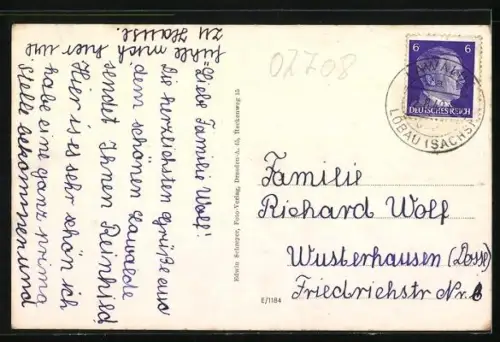 "Liebe Familie Wolf!
Die herzlichsten Grüße aus
dem schönen Lawalde
sendet Ihnen Reinhild
Hier ist es sehr schön ich
habe eine ganz prima
Stelle bekommen und
fühle mich hier wie
zu Hause.
02708
6 6
DEUTSCHES REICH
LAWALDE
LÖBAU (SACHS)
Familie
Richard Wolf
Wusterhausen (Dosse)
Friedrichstr Nr. 6
Foto-Verlag, Dresden-A.
E/1184